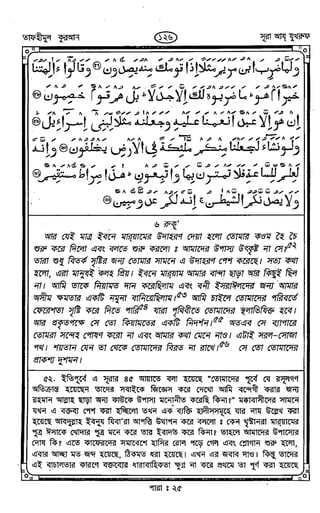 তাফহীমুল কুরআন
১২৬
সূরা আয্ যুখরুফ
وَلَمَّا ضُرِبَ ابْنُ مَرْيَمَ مَثَلًا إِذَا قَوْمُكَ مِنْهُ يَصِدُّونَ ﴿﴾ وَقَالُوا ءَآلِهَتُنَا
خَيْرٌ أَمْ هُوَ ۚ مَا ضَرَبُوهُ لَكَ إِلَّا جَدَلًا ۚ بَلْ هُمْ قَوْمٌ خَصِمُونَ ﴿﴾
إِنْ هُوَ إِلَّا عَبْدٌ أَنْعَمْنَا عَلَيْهِ وَجَعَلْنَٰهُ مَثَلًا لِبَنِي إِسْرَآءِيلَ ﴿﴾
وَلَوْ نَشَآءُ لَجَعَلْنَا مِنْكُمْ مَلَٰٓئِكَةً فِي الْأَرْضِ يَخْلُفُونَ ﴿﴾ وَإِنَّهُ
لَعِلْمٌ لِلسَّاعَةِ فَلَا تَمْتَرُنَّ بِهَا وَاتَّبِعُونِ ۚ هَٰذَا صِرَاطٌ مُسْتَقِيمٌ ﴿﴾
وَلَا يَصُدَّنَّكُمُ الشَّيْطَٰنُ ۚ إِنَّهُ لَكُمْ عَدُوٌّ مُبِينٌ ﴿﴾
৬ রুকূ'
আর যেই মাত্র ইবনে মারয়ামের উদাহরণ দেয়া হলো তোমার কওম হৈ চৈ
শুরু করে দিলো এবং বলতে শুরু করলো ঃ আমাদের উপাস্য উৎকৃষ্ট না সে।৫২
তারা শুধু বিতর্ক সৃষ্টির জন্য তোমার সামনে এ উদাহরণ পেশ করেছে। সত্য কথা
হলো, এরা মানুষই কলহ প্রিয়। ইবনে মারয়াম আমার বান্দা ছাড়া আর কিছুই ছিল
না। আমি তাকে নিয়ামত দান করেছিলাম এবং বনী ইসরাঈলদের জন্য আমার
অসীম ক্ষমতার একটি নমুনা বানিয়েছিলাম।৫৩ আমি চাইলে তোমাদের পরিবর্তে
ফেরেশতা সৃষ্টি করে দিতে পারি৫৪ যারা পৃথিবীতে তোমাদের স্থলাভিষিক্ত হবে।
আর প্রকৃতপক্ষে সে তো কিয়ামতের একটি নিদর্শন।৫৫ অতএব সে ব্যাপারে
তোমরা সন্দেহ পোষণ করো না এবং আমার কথা মেনে নাও। এটাই সরল-সোজা
পথ। শয়তান যেন তা থেকে তোমাদের বিরত না রাখে।৫৬ সে তো তোমাদের
প্রকাশ্য দুশমন।
৫২. ইতিপূর্বে এ সূরার ৪৫ আয়াতে বলা হয়েছে "তোমাদের পূর্বে যে রসূলগণ
অতিক্রান্ত হয়েছেন তাদের সবাইকে জিজ্ঞেস করে দেখো আমি বন্দেগী করার জন্য
রহমান আল্লাহ ছাড়া অন্য কাউকে উপাস্য মনোনীত করেছি কিনা?" মক্কাবাসীদের সামনে
যখন এ বক্তব্য পেশ করা হচ্ছিলো তখন এক ব্যক্তি হাদীসসমূহে যার নাম উল্লেখ করা
হয়েছে আবদুল্লাহ ইবনুয যিবা'রা আপত্তি উত্থাপন করে বললো ঃ কেন খৃষ্টানরা মারয়ামের
পুত্র ঈসাকে খোদার পুত্র মনে করে তার ইবাদত করে কিনা? তাহলে আমাদের উপাস্যের
দোষ কি? এতে কাফেরদের সমাবেশে হাসির রোল পড়ে গেল এবং শ্লোগান শুরু হলো,
এবার আচ্ছা মত জব্দ হয়েছে, ঠিকমত ধরা হয়েছে। এখন এর জবাব দাও। কিন্তু তাদের
এই বাচালতার কারণে বক্তব্যের ধারাবাহিকতা ক্ষুণ্ন না করে প্রথমে তা পূর্ণ করা হয়েছে
পারা ঃ ২৫